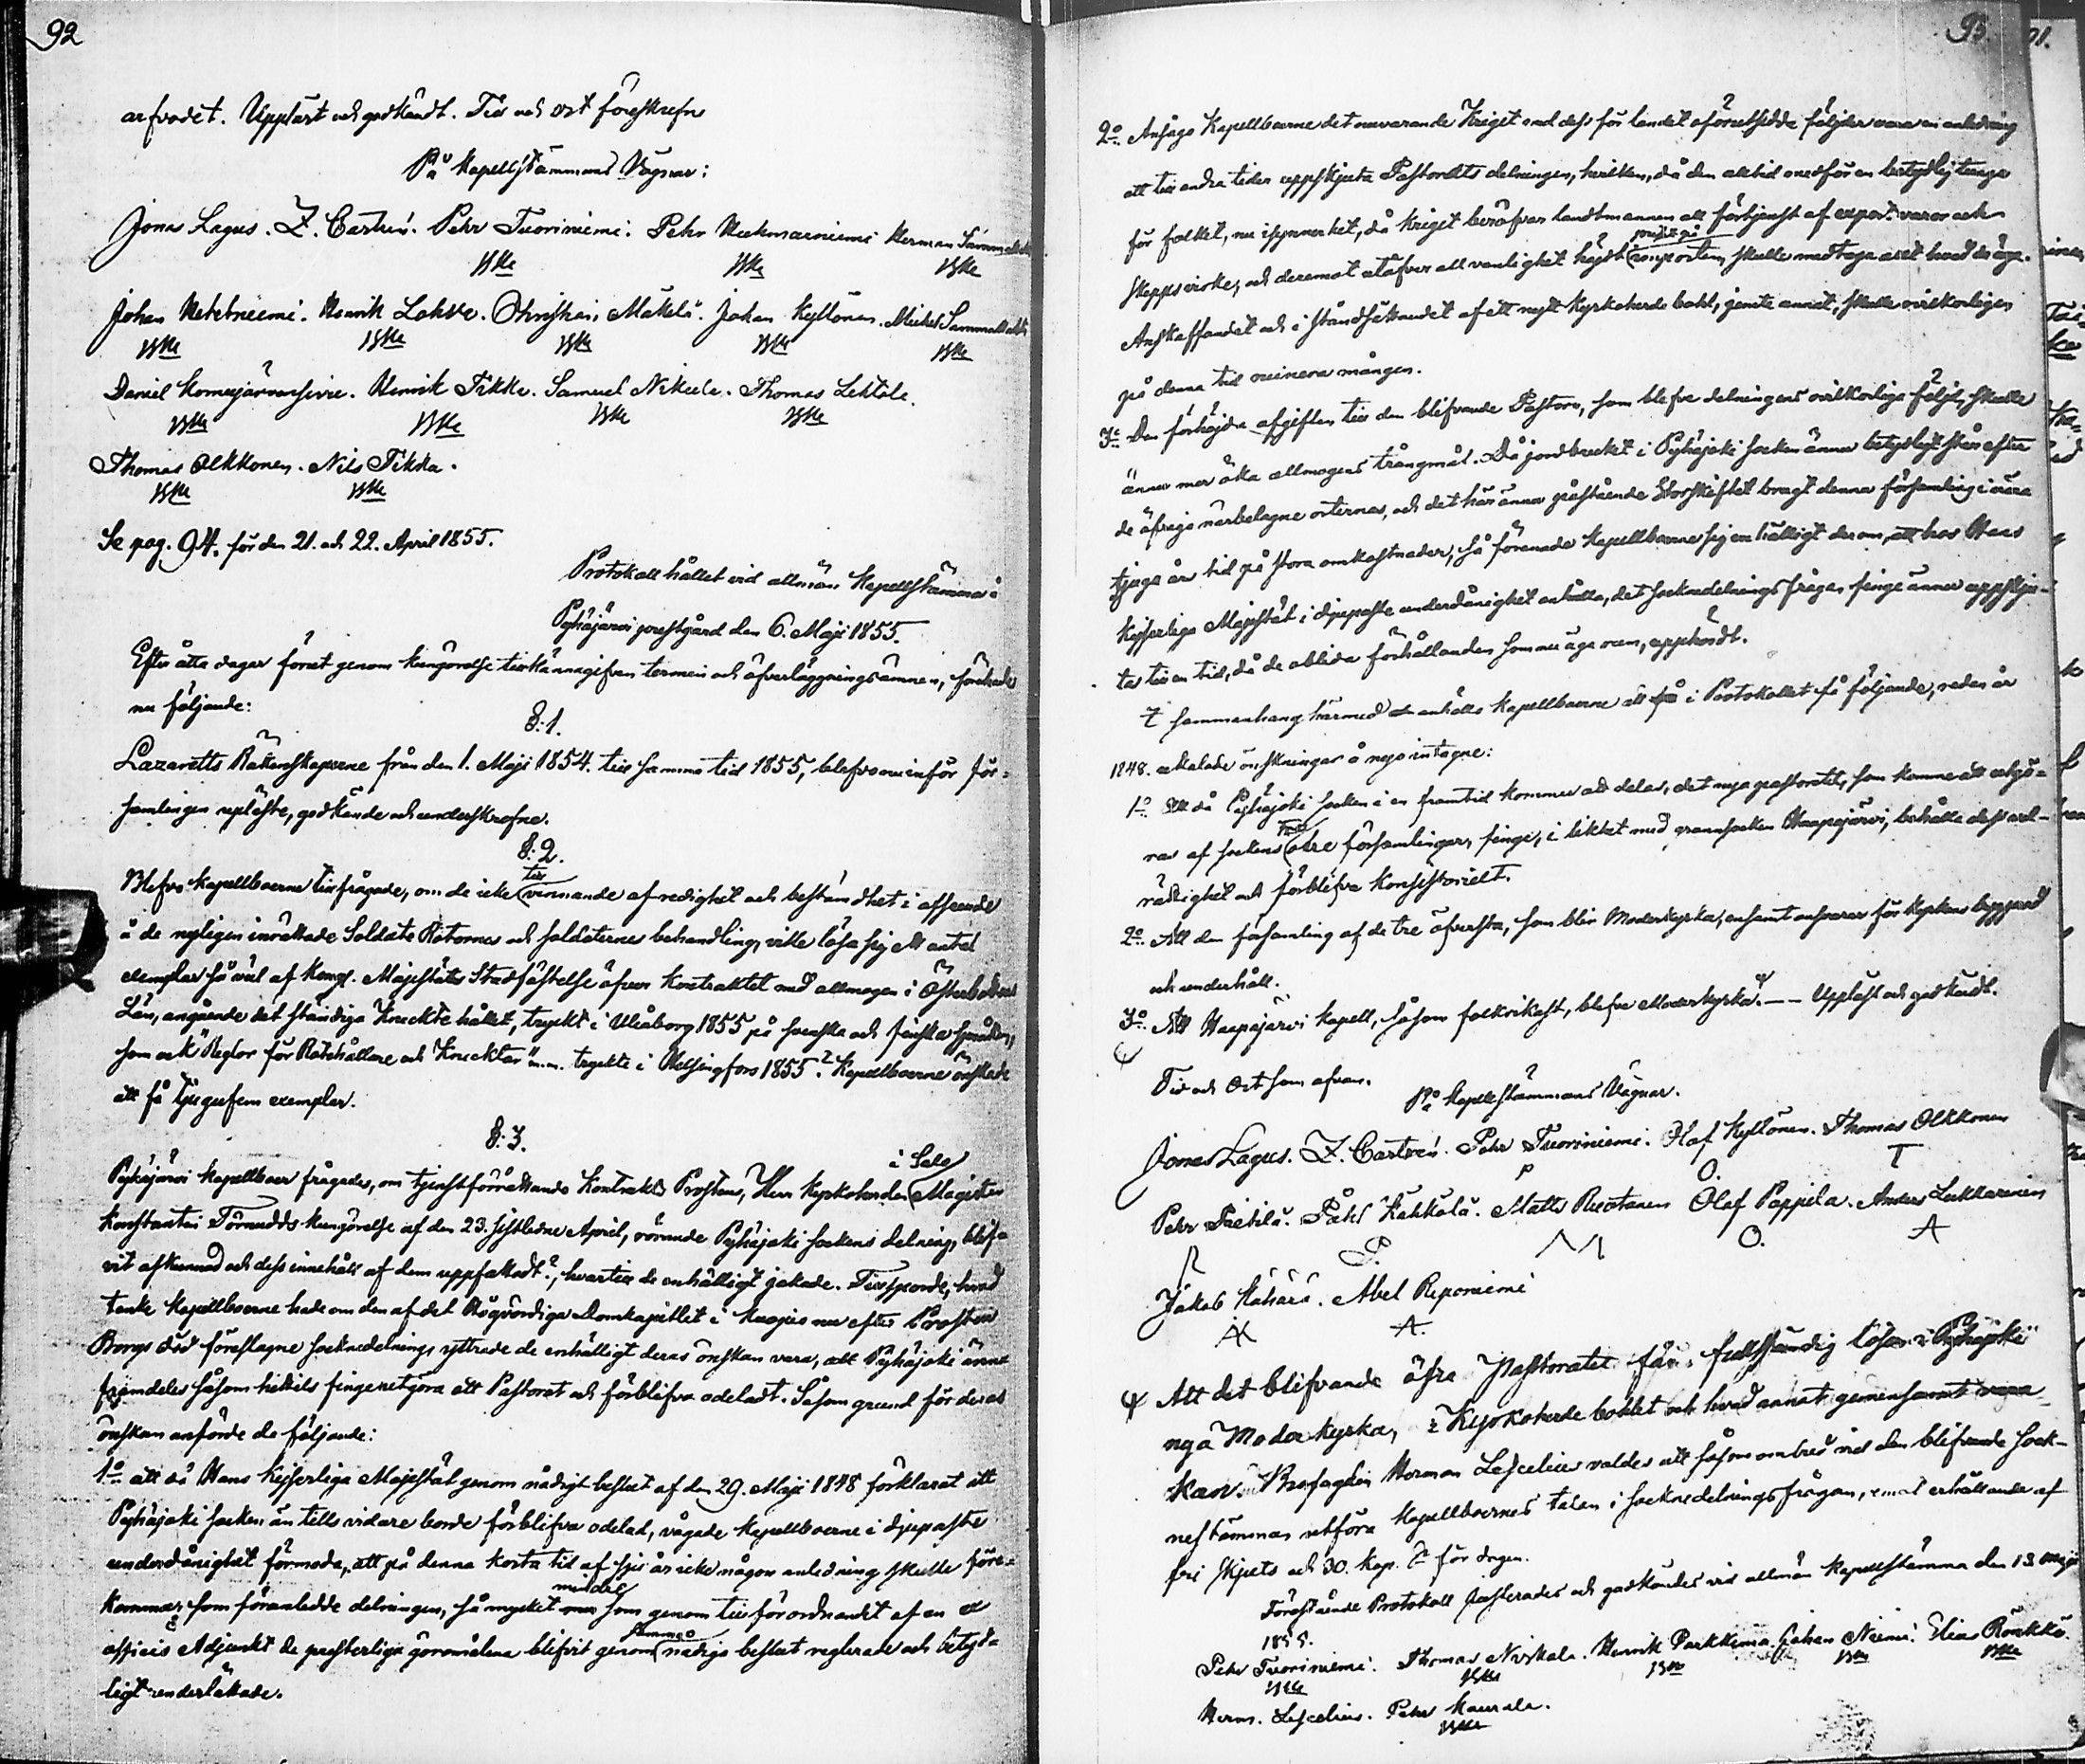 92
arfvodet. Uppläst och godkändt. Tid och ort föreskrefne
På Kapellstämmans Vägnar:
Jonas Lagus. Z. Castrén. Pehr Tuoriniemi. Pehr Herman
Johan Henrik Lohva. Christian Mäkelä. Johan Kyllönen. Michel
Daniel Henrik Tikka. Samuel Nikula. Thomas Lehtola.
Thomas Olkkonen. Nils Tikka.
Se pag. 94. för den 21. och 22. April 1855.
Protokoll hållet vid allmän Kapellstämma i
Pyhäjärvi prestgård den 6. Maji 1855.
Efter åtta dagar förut genom kungörelse tillkännagifven termin och öfverläggningsämnen, förehades
nu följande:
§. 1.
Lazaretts Räkenskaperne från den 1. Maji 1854. till samma tid 1855, blefvo nu inför för-
samlingen upläste, godkände och underskrefne.
§. 2.
Blefvo Kapellboerne tillfrågade, om de icke till vinnande af redighet och bestämdhet i afseende
å de nyligen inrättade Soldate Rotorne och soldaternes behandling, ville lösa sig ett antal
exemplar så väl af Kongl. Majestäts Stadfästelse öfver Kontraktet med allmogen i Österbottens
Län, angående det ständiga Knektehållet, tryckt i Uleåborg 1855 på svenska och finska språken,
som ock "Reglor för Rotehållare och Knecktar" m.m. tryckte i Helsingfors 1855? Kapellboerne önskade
att få tjugufem exemplar.
§. 3.
Pyhäjärvi Kapellboer frågades, om tjenstförrättande Kontrakts Prostens, Herr Kyrkoherden i Salo Magister
Konstantin Törnudds kungörelse af den 23. sistledne April, rörande Pyhäjoki sockens delning, blif-
vit afkunnad och dess innehåll af dem uppfattadt?, hvartill de enhälligt jakade. Tillsporde, hvad
tanke Kapellboerne hade om den af det Högvördiga Domkapitlet i Kuopio nu efter Prosten
Borgs död föreslagne sockendelning, yttrade de enhälligt deras önskan vara, att Pyhäjoki ännu
framdeles såsom hittils finge utgöra ett Pastorat och förblifva odeladt. Såsom grund för deras
önskan anförde de följande:
1o att då Hans Kejserliga Majestät genom nådigt beslut af den 29. Maji 1848 förklarat att
Pyhäjoki socken än tills vidare borde förblifva odelad, vågade Kapellboerne i djupaste
underdånighet förmoda, att på denna korta tid af sju år icke någon anledning skulle före-
kommas, som föranledde delningen, så mycket mindre som genom tillförordnandet af en ex
officio Adjunkt de presterliga göromålena blifvit genom samma nådiga beslut reglerade och betyd-
ligt underlättade.
93.
2o Ansågo Kapellboerne det nuvarande Kriget med dess för landet oförutsedda följder vara en anledning
att till andra tider uppskjuta Pastoratets delningen, hvilken, då den alltid medför en betydlig tunga
för folket, nu isynnerhet, då kriget beröfvar landtmannen all förtjenst af export varor och
skeppsvirke, och deremot utöfver all vanlighet höjdt priset på importen, skulle medtaga allt hvad de äga.
Anskaffandet och i ståndsättandet af ett nytt Kyrkoherde bohl, jemte annat, skulle ovilkorligen
på denna tid ruinera mången.
3o Den förhöjda afgiften till den blifvande Pastorn, som blefve delningens ovilkorliga följd, skulle
ännu mer öka allmogens trångmål. Då jordbruket i Pyhäjoki socken ännu betydligt står efter
de öfriga närbelägne orternas, och det här ännu påstående Storskiftet bragt denna församling i våra
tjugu år tid på stora omkostnader, så förenade Kapellboerne sig enhälligt derom, att hos Hans
Kejserliga Majestät i djupaste underdånighet anhålla, det sockendelnings frågan finge ännu uppskju-
tas till en tid, då de oblida förhållanden som nu äga rum, upphördt.
I sammanhang härmed anhöllo Kapellboerne att få i Protokollet få följande, redan år
1848. uttalade önskningar å nyo intagne:
1o Att då Pyhäjoki socken i en framtid kommer att delas, det nya pastoratet, som komme att utgö-
ras af sockens tre öfre församlingar, finge, i likhet med grannsocken Haapajärvi, behålla dess val-
rättighet och förblifva Konsistorielt.
2o Att den församling af de tre öfversta, som blir Moderkyrka, ensamt ansvarar för kyrkans byggnad
och underhåll.
3o Att Haapajärvi Kapell, såsom folkrikast, blefve Moderkyrka. — Uppläst och godkändt.
Tid och Ort som ofvan.
På Kapellstämmans Vägnar.
Jonas Lagus. Z. Castrén. Pehr Tuoriniemi. Olof Kyllönen. Thomas Olkkonen
P O. T
Pehr Pietilä. Påhl Kokkola. Matts Ruotanen Olof Poppila. Anders
P P. M O. A
Jakob Kähärä. Abel Reponiemi
A.
Att det blifvande öfra Pastoratet får fullständig lösen i Pyhäjoki
nya Moderkyrka, i Kyrkoherde bohlet och hvad annat gemensamt vara
kan. Herman Lescelius valdes att såsom ombud vid den blifvande sock-
nestämman utföra Kapellboernes talan i sockendelningsfrågan, emot erhållande af
fri skjuts och 30. kop. för dagen.
Förestående Protokoll justerades och godkändes vid allmän Kapellstämma den 13 Maji
1855.
Pehr Tuoriniemi. Thomas Niskala. Henrik Parkkima. Johan Niemi. Elias Rönkkö.
Herm. Lescelius. Pehr Maurala.